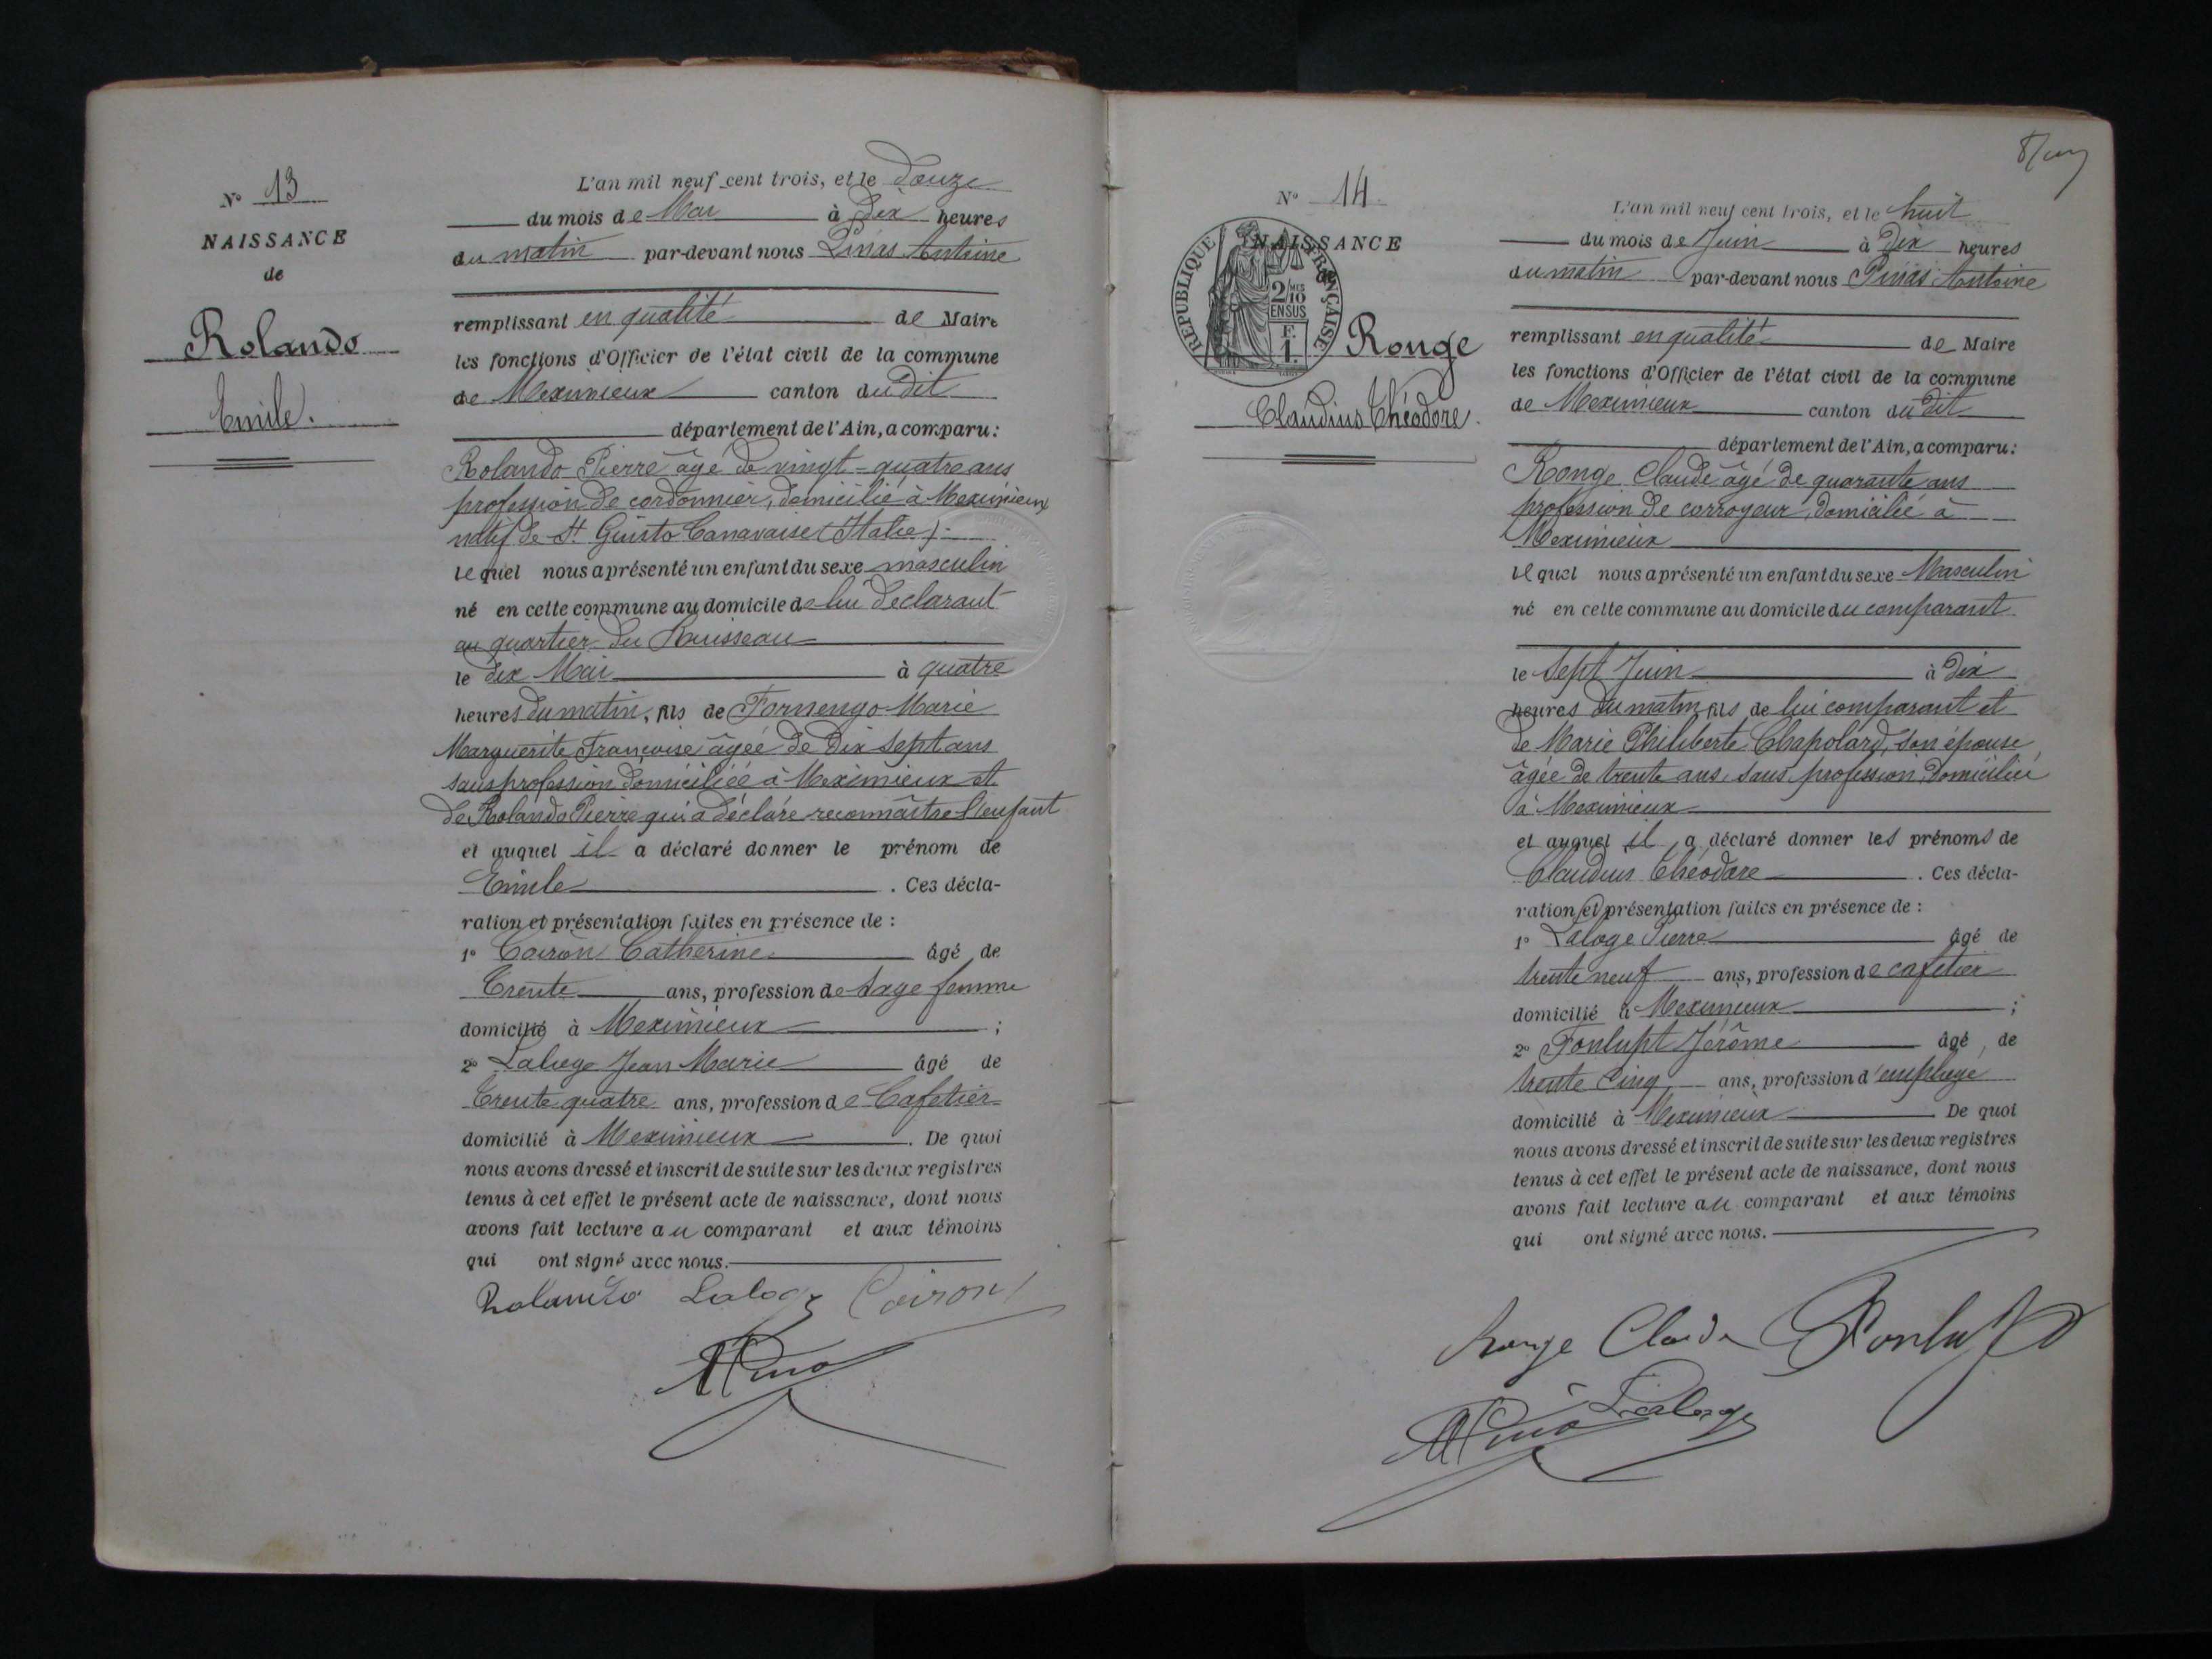 N° 13
NAISSANCE
de
Rolando
Emile.
L'an mil neuf cent trois, et le Douze
du mois de Mai à Dix heures
du matin par-devant nous Pinás Antoine
remplissant en qualité de Maire
les fonctions d'Officier de l'état civil de la commune
de Meximieux canton du dit
département de l'Ain, a comparu:
Rolando Pierre âgé de vingt-quatre ans
profession de cordonnier, domicilié à Meximieux
natif de St Giusto Canavaise (Italie)
lequel nous a présenté un enfant du sexe masculin
né en cette commune au domicile de lui déclarant
au quartier du Ruisseau
le dix Mai à quatre
heures du matin, fils de Fornengo Marie
Marguerite Françoise âgée de Dix sept ans
sans profession domiciliée à Meximieux et
de Rolando Pierre qui a déclaré reconnaître l'enfant
et auquel il a déclaré donner le prénom de
Emile. Ces décla-
ration et présentation faites en présence de :
1° Coiron Catherine âgé de
Trente ans, profession de sage femme
domicilié à Meximieux ;
2° Laloge Jean Marie âgé de
Trente quatre ans, profession de Cafetier
domicilié à Meximieux. De quoi
nous avons dressé et inscrit de suite sur les deux registres
tenus à cet effet le présent acte de naissance, dont nous
avons fait lecture au comparant et aux témoins
qui ont signé avec nous.
Rolando Laloge Coiron
N° 14.
NAISSANCE
de
REPUBLIQUE FRANÇAISE
2/10 MES
EN SUS
F.
1.
Rouge
Claudius Théodore.
L'an mil neuf cent trois, et le huit
du mois de Juin à Dix heures
du matin par-devant nous Pinás Antoine
remplissant en qualité de Maire
les fonctions d'Officier de l'état civil de la commune
de Meximieux canton du dit
département de l'Ain, a comparu:
Rouge Claude âgé de quarante ans
profession de corroyeur, domicilié à
Meximieux
lequel nous a présenté un enfant du sexe Masculin
né en cette commune au domicile du comparant
le Sept Juin à Dix
heures du matin fils de lui comparant et
de Marie Philiberte Chapolard, son épouse
âgée de trente ans, sans profession, domiciliée
à Meximieux
et auquel il a déclaré donner les prénoms de
Claudius Théodore. Ces décla-
ration et présentation faites en présence de :
1° Laloge Pierre âgé de
trente neuf ans, profession de cafetier
domicilié à Meximieux ;
2° Fonlupt Jérôme âgé de
trente cinq ans, profession d'employé
domicilié à Meximieux De quoi
nous avons dressé et inscrit de suite sur les deux registres
tenus à cet effet le présent acte de naissance, dont nous
avons fait lecture au comparant et aux témoins
qui ont signé avec nous.
Rouge Claude Fonlupt
Laloge